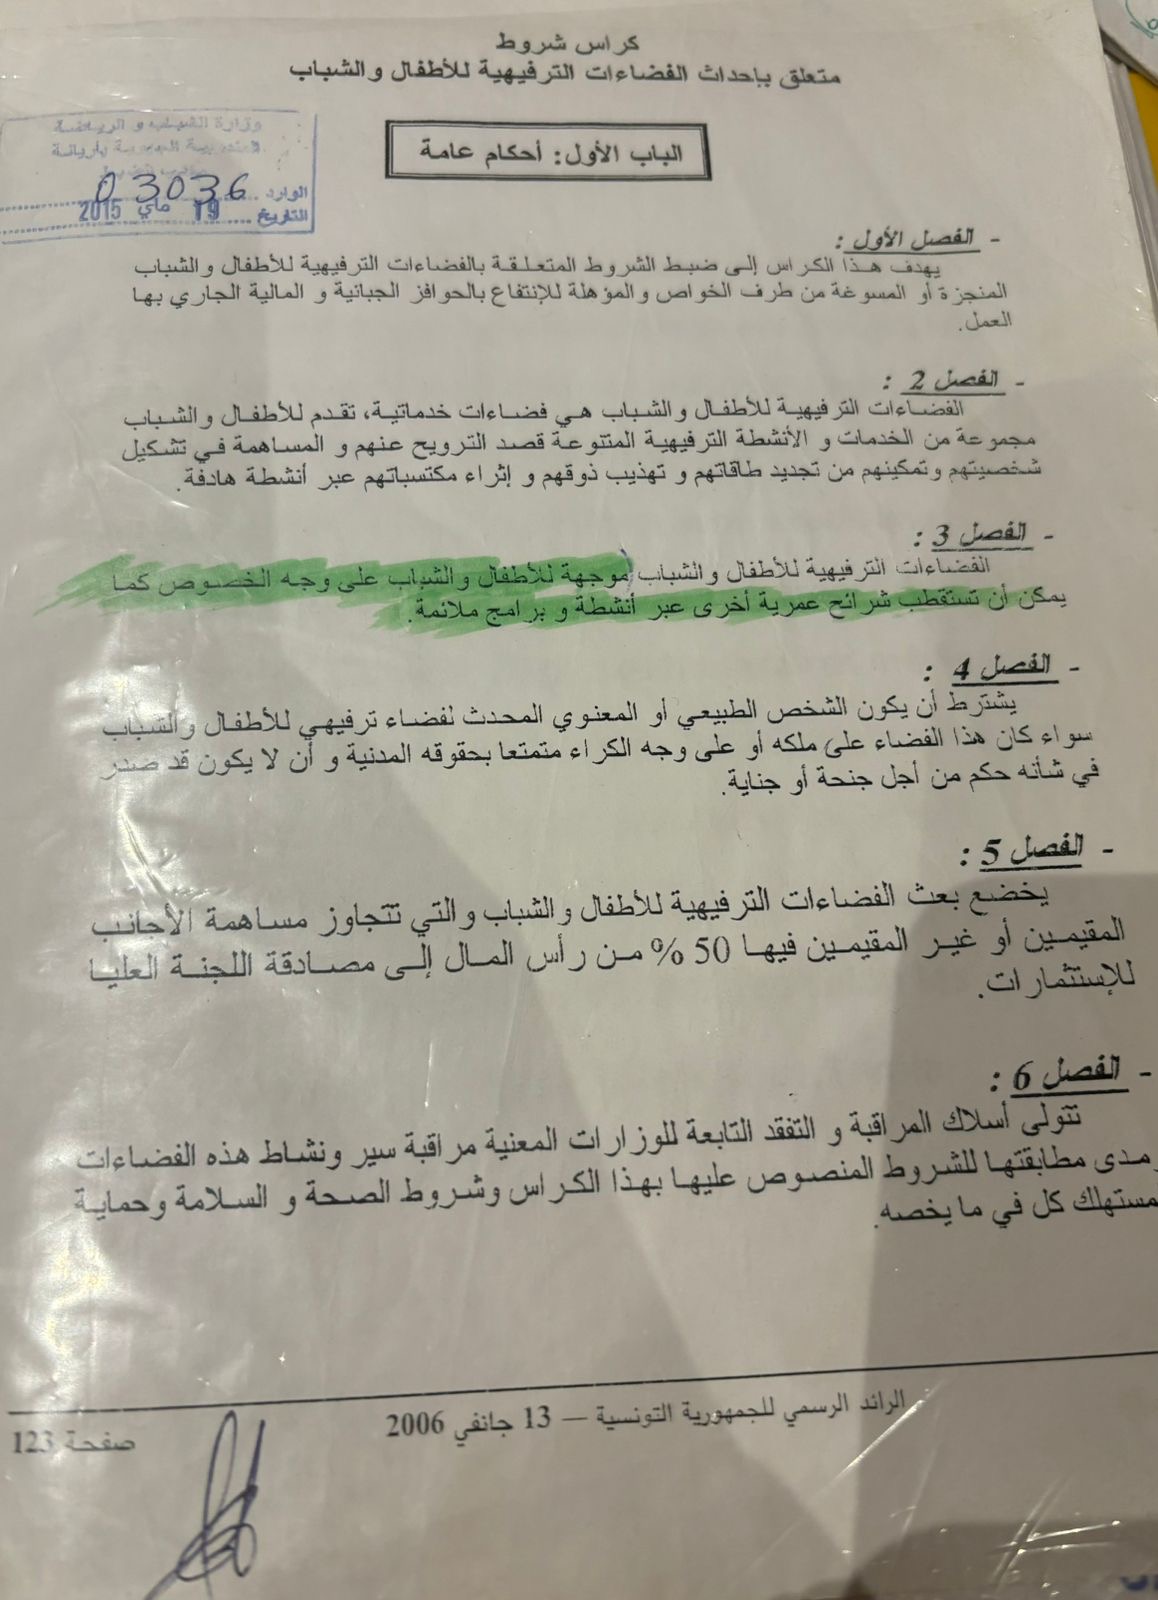 كراس شروط
متعلق بإحداث الفضاءات الترفيهية للأطفال والشباب
وزارة الشباب و الرياضة
الوارد 03036
التاريخ 19 ماي 2015
الباب الأول: أحكام عامة
- الفصل الأول :
يهدف هذا الكراس إلى ضبط الشروط المتعلقة بالفضاءات الترفيهية للأطفال والشباب
المنجزة أو المسوغة من طرف الخواص والمؤهلة للإنتفاع بالحوافز الجبائية و المالية الجاري بها
العمل.
- الفصل 2 :
الفضاءات الترفيهية للأطفال والشباب هي فضاءات خدماتية، تقدم للأطفال والشباب
مجموعة من الخدمات و الأنشطة الترفيهية المتنوعة قصد الترويح عنهم و المساهمة في تشكيل
شخصيتهم وتمكينهم من تجديد طاقاتهم و تهذيب ذوقهم و إثراء مكتسباتهم عبر أنشطة هادفة.
- الفصل 3 :
الفضاءات الترفيهية للأطفال والشباب موجهة للأطفال والشباب على وجه الخصوص كما
يمكن أن تستقطب شرائح عمرية أخرى عبر أنشطة و برامج ملائمة.
- الفصل 4 :
يشترط أن يكون الشخص الطبيعي أو المعنوي المحدث لفضاء ترفيهي للأطفال والشباب
سواء كان هذا الفضاء على ملكه أو على وجه الكراء متمتعا بحقوقه المدنية و أن لا يكون قد صدر
في شأنه حكم من أجل جنحة أو جناية.
- الفصل 5 :
يخضع بعث الفضاءات الترفيهية للأطفال والشباب والتي تتجاوز مساهمة الأجانب
المقيمين أو غير المقيمين فيها 50 % من رأس المال إلى مصادقة اللجنة العليا
للإستثمارات.
- الفصل 6 :
تتولى أسلاك المراقبة و التفقد التابعة للوزارات المعنية مراقبة سير ونشاط هذه الفضاءات
ومدى مطابقتها للشروط المنصوص عليها بهذا الكراس وشروط الصحة و السلامة وحماية
المستهلك كل في ما يخصه.
الرائد الرسمي للجمهورية التونسية — 13 جانفي 2006
صفحة 123